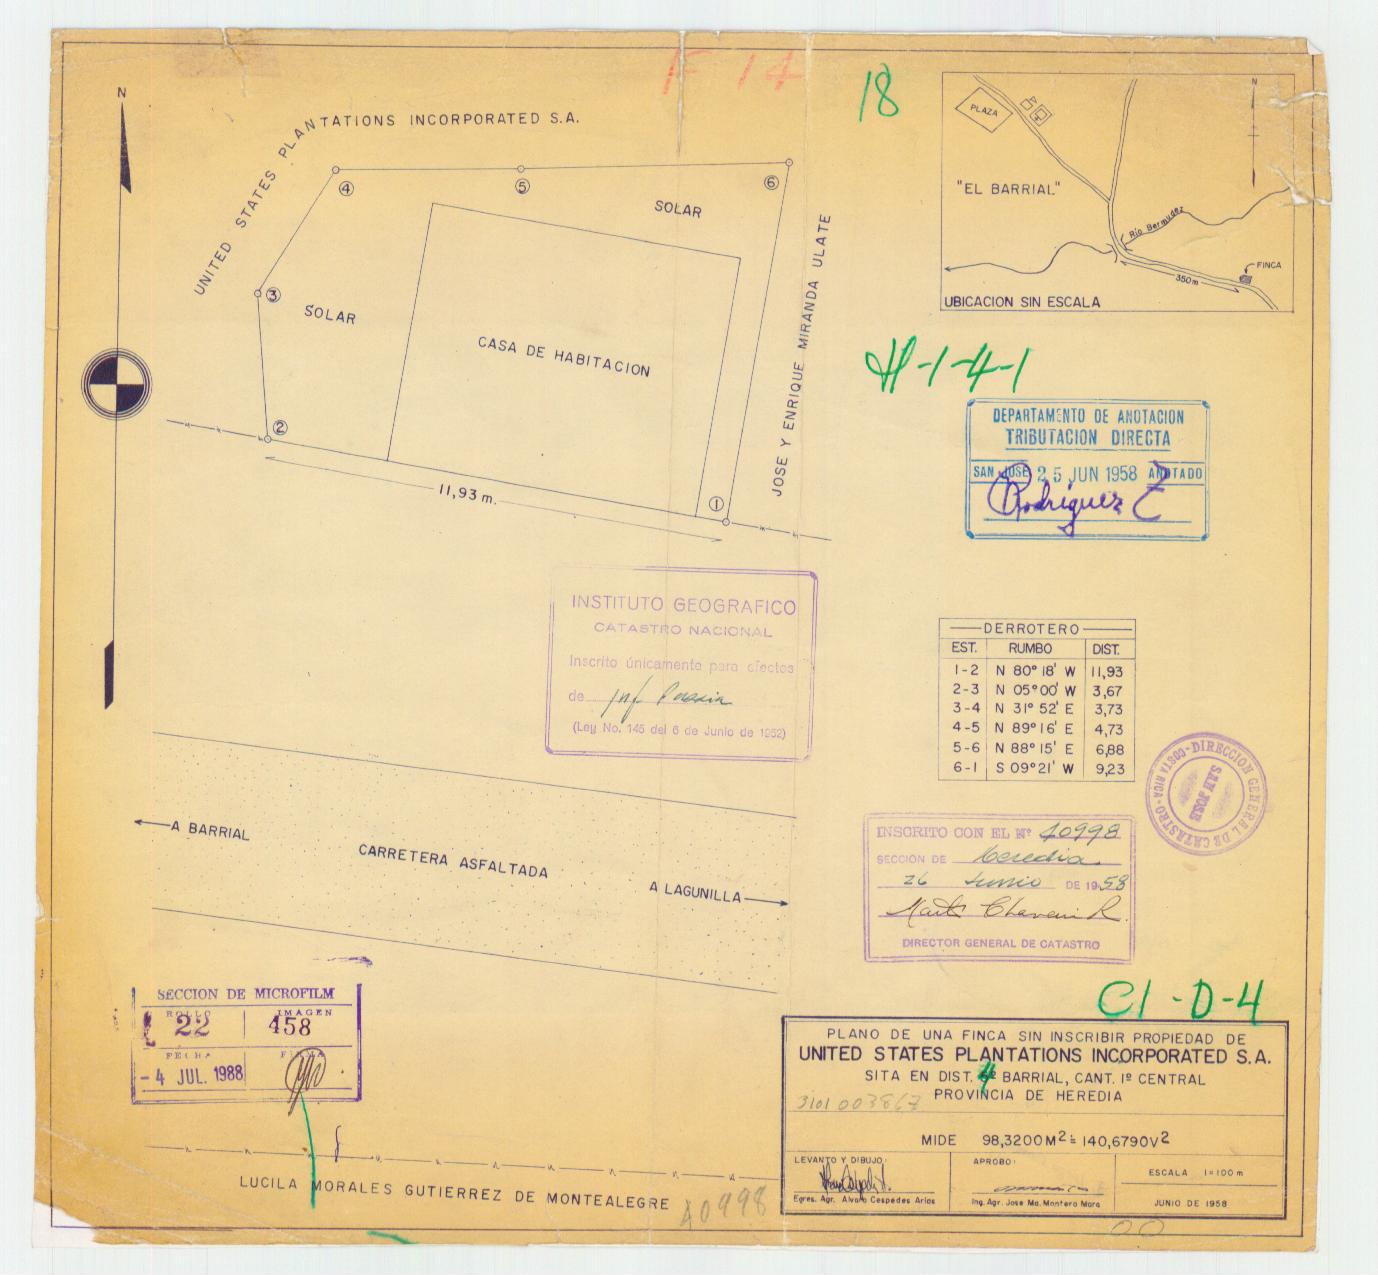 F 14
18
N
UNITED STATES PLANTATIONS INCORPORATED S.A.
4
5
6
SOLAR
3
SOLAR
CASA DE HABITACION
JOSE Y ENRIQUE MIRANDA ULATE
2
1
11,93 m.
N
PLAZA
"EL BARRIAL"
Río Bermudez
FINCA
350m
UBICACION SIN ESCALA
H-1-4-1
DEPARTAMENTO DE ANOTACION
TRIBUTACION DIRECTA
SAN JOSE 25 JUN 1958 ANOTADO
Rodríguez Z
INSTITUTO GEOGRAFICO
CATASTRO NACIONAL
Inscrito únicamente para efectos
de Inf.
(Ley No. 145 del 6 de Junio de 1952)
DERROTERO
EST. RUMBO DIST.
1-2 N 80° 18' W 11,93
2-3 N 05° 00' W 3,67
3-4 N 31° 52' E 3,73
4-5 N 89° 16' E 4,73
5-6 N 88° 15' E 6,88
6-1 S 09° 21' W 9,23
DIRECCION GENERAL DE CATASTRO - COSTA RICA -
SAN JOSE
INSCRITO CON EL Nº 40998
SECCION DE Heredia
26 Junio DE 1958
DIRECTOR GENERAL DE CATASTRO
A BARRIAL
CARRETERA ASFALTADA
A LAGUNILLA
C1-D-4
SECCION DE MICROFILM
ROLLO IMAGEN
22 458
FECHA FIRMA
- 4 JUL. 1988
PLANO DE UNA FINCA SIN INSCRIBIR PROPIEDAD DE
UNITED STATES PLANTATIONS INCORPORATED S.A.
SITA EN DIST. 4º BARRIAL, CANT. 1º CENTRAL
PROVINCIA DE HEREDIA
3101 003867
MIDE 98,3200M² = 140,6790V²
LEVANTO Y DIBUJO:
Egres. Agr. Alvaro Cespedes Arias
APROBO:
Ing. Agr. Jose Ma. Montero Mora
ESCALA 1=100 m
JUNIO DE 1958
LUCILA MORALES GUTIERREZ DE MONTEALEGRE
40998
00